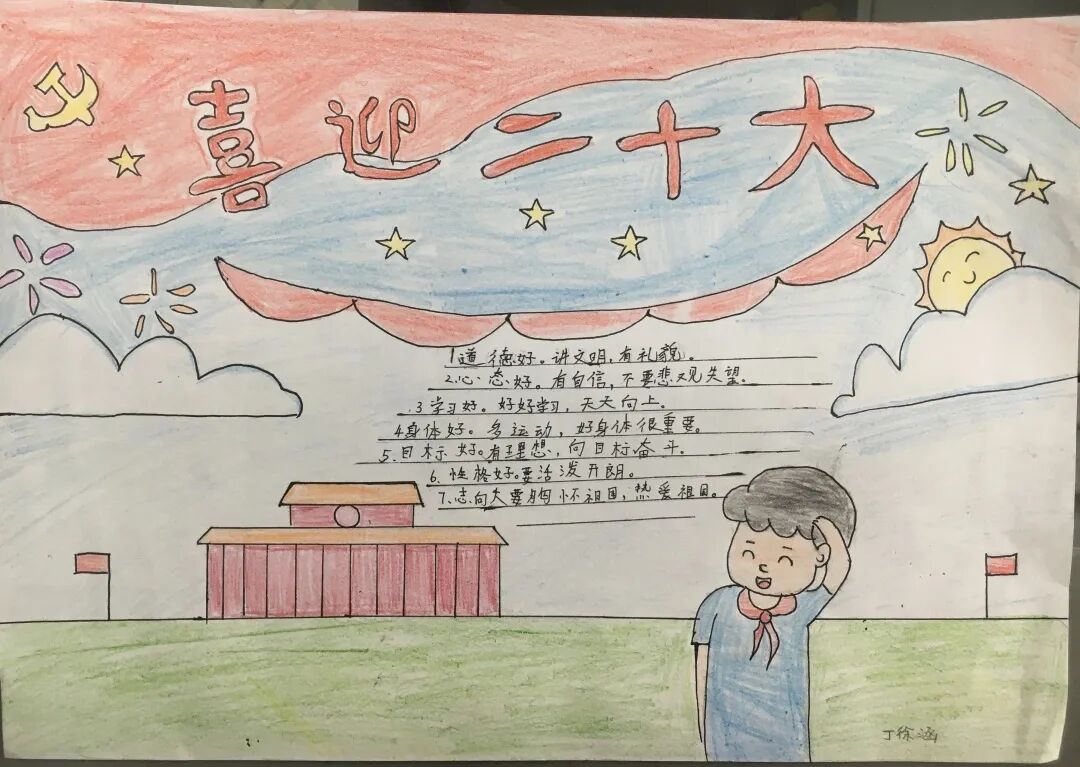 喜迎二十大
1道德好。讲文明,有礼貌。
2.心态好。有自信,不要悲观失望。
3学习好。好好学习,天天向上。
4身体好。多运动,好身体很重要。
5.目标好。有理想,向目标奋斗。
6.性格好。要活泼开朗。
7.志向大要胸怀祖国,热爱祖国。
丁徐涵